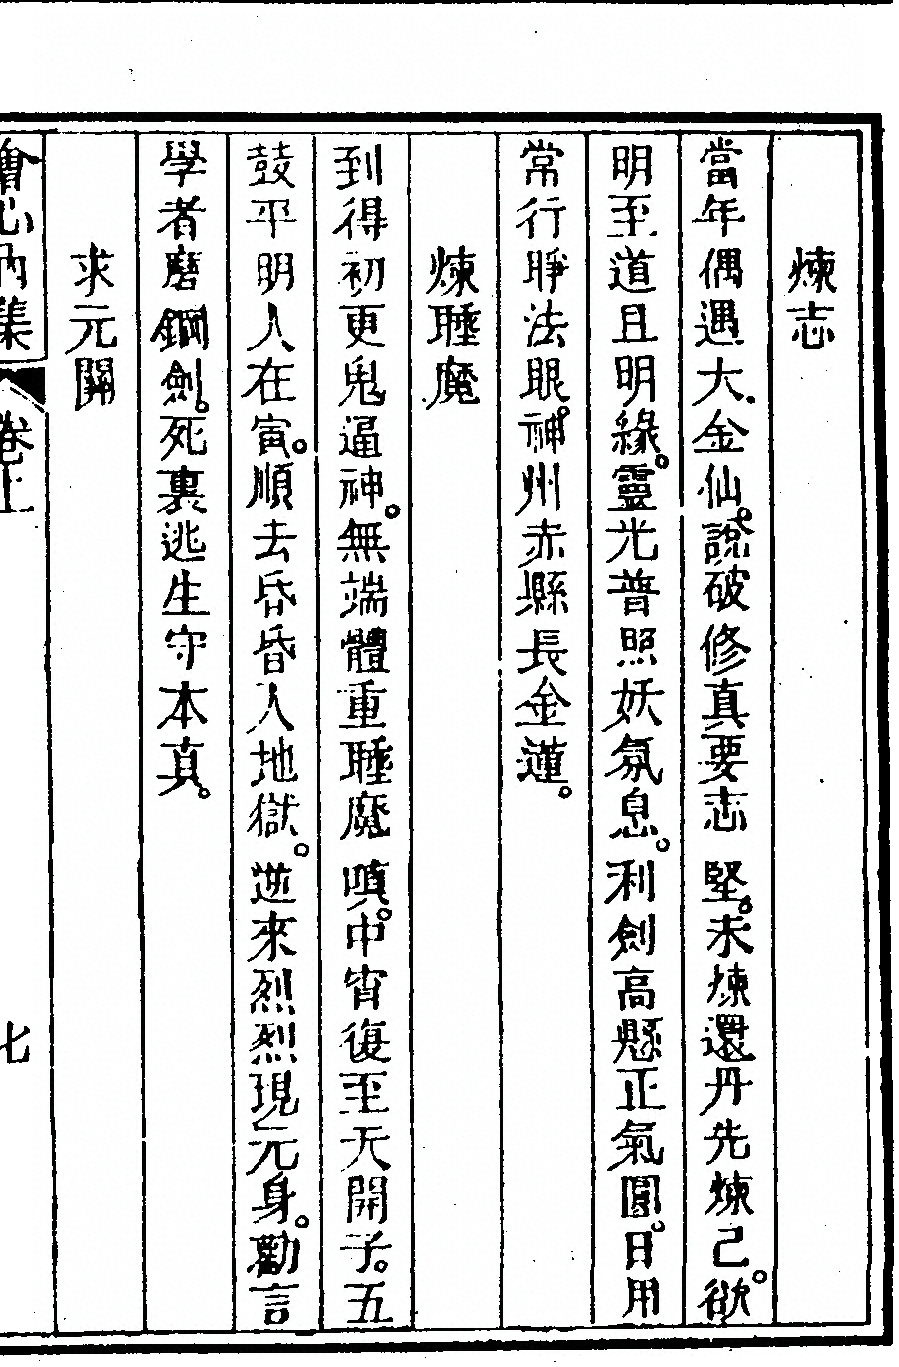 煉志
當年偶遇大金仙。說破修真要志堅。未煉還丹先煉己。欲
明至道且明緣。靈光普照妖氛息。利劍高懸正氣圓。日用
常行睜法眼。神州赤縣長金蓮。
煉睡魔
到得初更鬼逼神。無端體重睡魔嗔。中宵復至天開子。五
鼓平明人在寅。順去昏昏入地獄。逆來烈烈現元身。勸言
學者磨鋼劍。死裏逃生守本真。
求元關
會心內集
卷上
七